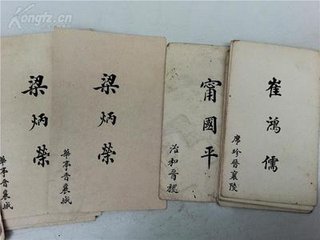 Kongfz.cn
梁炳榮
華亭晉襄
梁炳榮
華亭晉襄
甯國平
治和晉
崔鴻儒
席珍晉襄陵